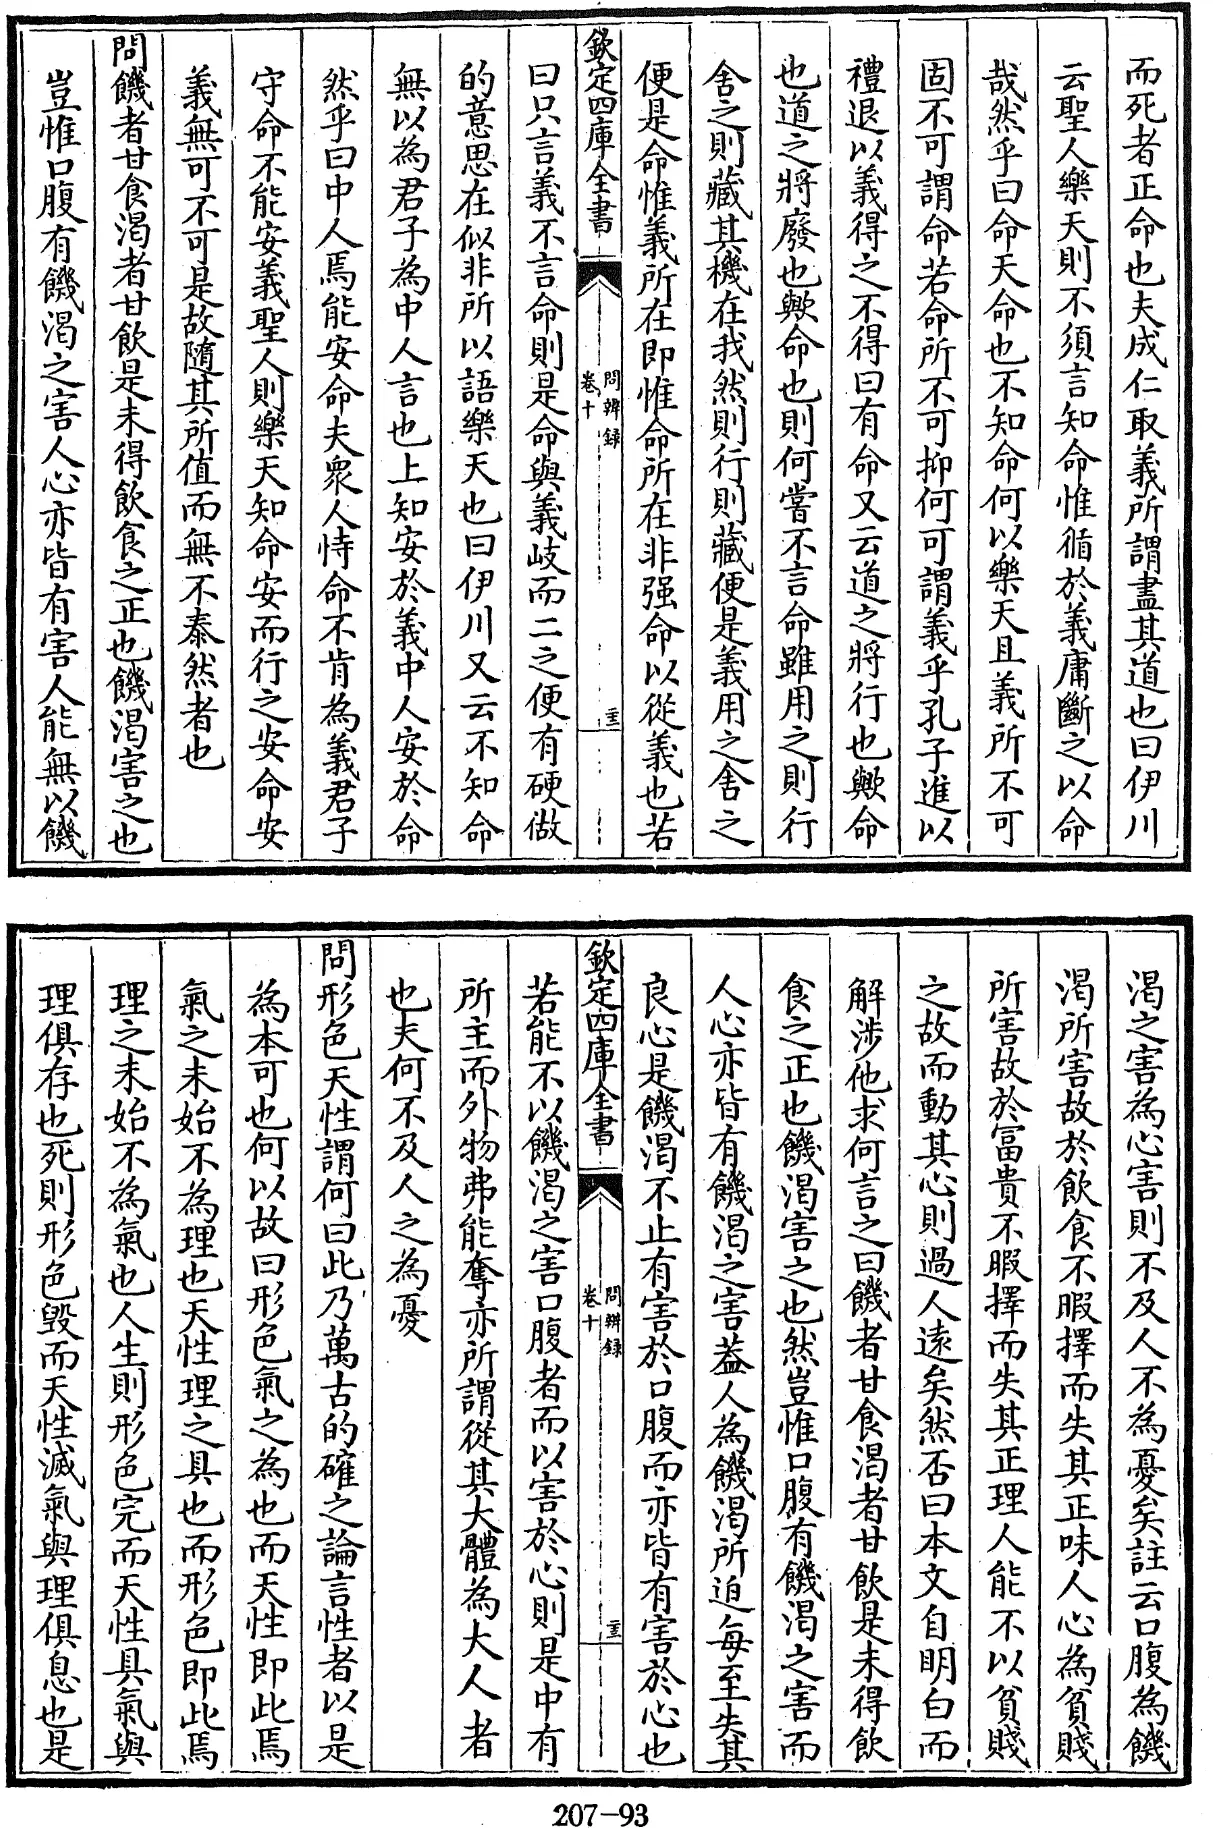 而死者正命也夫成仁取義所謂盡其道也曰伊川
云聖人樂天則不須言知命惟循於義庸斷之以命
哉然乎曰命天命也不知命何以樂天且義所不可
固不可謂命若命所不可抑何可謂義乎孔子進以
禮退以義得之不得曰有命又云道之將行也歟命
也道之將廢也歟命也則何嘗不言命雖用之則行
舍之則藏其機在我然則行則藏便是義用之舍之
便是命惟義所在即惟命所在非强命以從義也若
欽定四庫全書
問辨録
卷十
曰只言義不言命則是命與義岐而二之便有硬做
的意思在似非所以語樂天也曰伊川又云不知命
無以為君子為中人言也上知安於義中人安於命
然乎曰中人焉能安命夫衆人恃命不肯為義君子
守命不能安義聖人則樂天知命安而行之安命安
義無可不可是故隨其所值而無不泰然者也
問饑者甘食渴者甘飲是未得飲食之正也饑渴害之也
豈惟口腹有饑渴之害人心亦皆有害人能無以饑
渴之害為心害則不及人不為憂矣註云口腹為饑
渴所害故於飲食不暇擇而失其正味人心為貧賤
所害故於富貴不暇擇而失其正理人能不以貧賤
之故而動其心則過人遠矣然否曰本文自明白而
解涉他求何言之曰饑者甘食渴者甘飲是未得飲
食之正也饑渴害之也然豈惟口腹有饑渴之害而
人心亦皆有饑渴之害蓋人為饑渴所迫每至失其
良心是饑渴不止有害於口腹而亦皆有害於心也
欽定四庫全書
問辨録
卷十
若能不以饑渴之害口腹者而以害於心則是中有
所主而外物弗能奪亦所謂從其大體為大人者
也夫何不及人之為憂
問形色天性謂何曰此乃萬古的確之論言性者以是
為本可也何以故曰形色氣之為也而天性即此焉
氣之未始不為理也天性理之具也而形色即此焉
理之未始不為氣也人生則形色完而天性具氣與
理俱存也死則形色毀而天性滅氣與理俱息也是
207-93